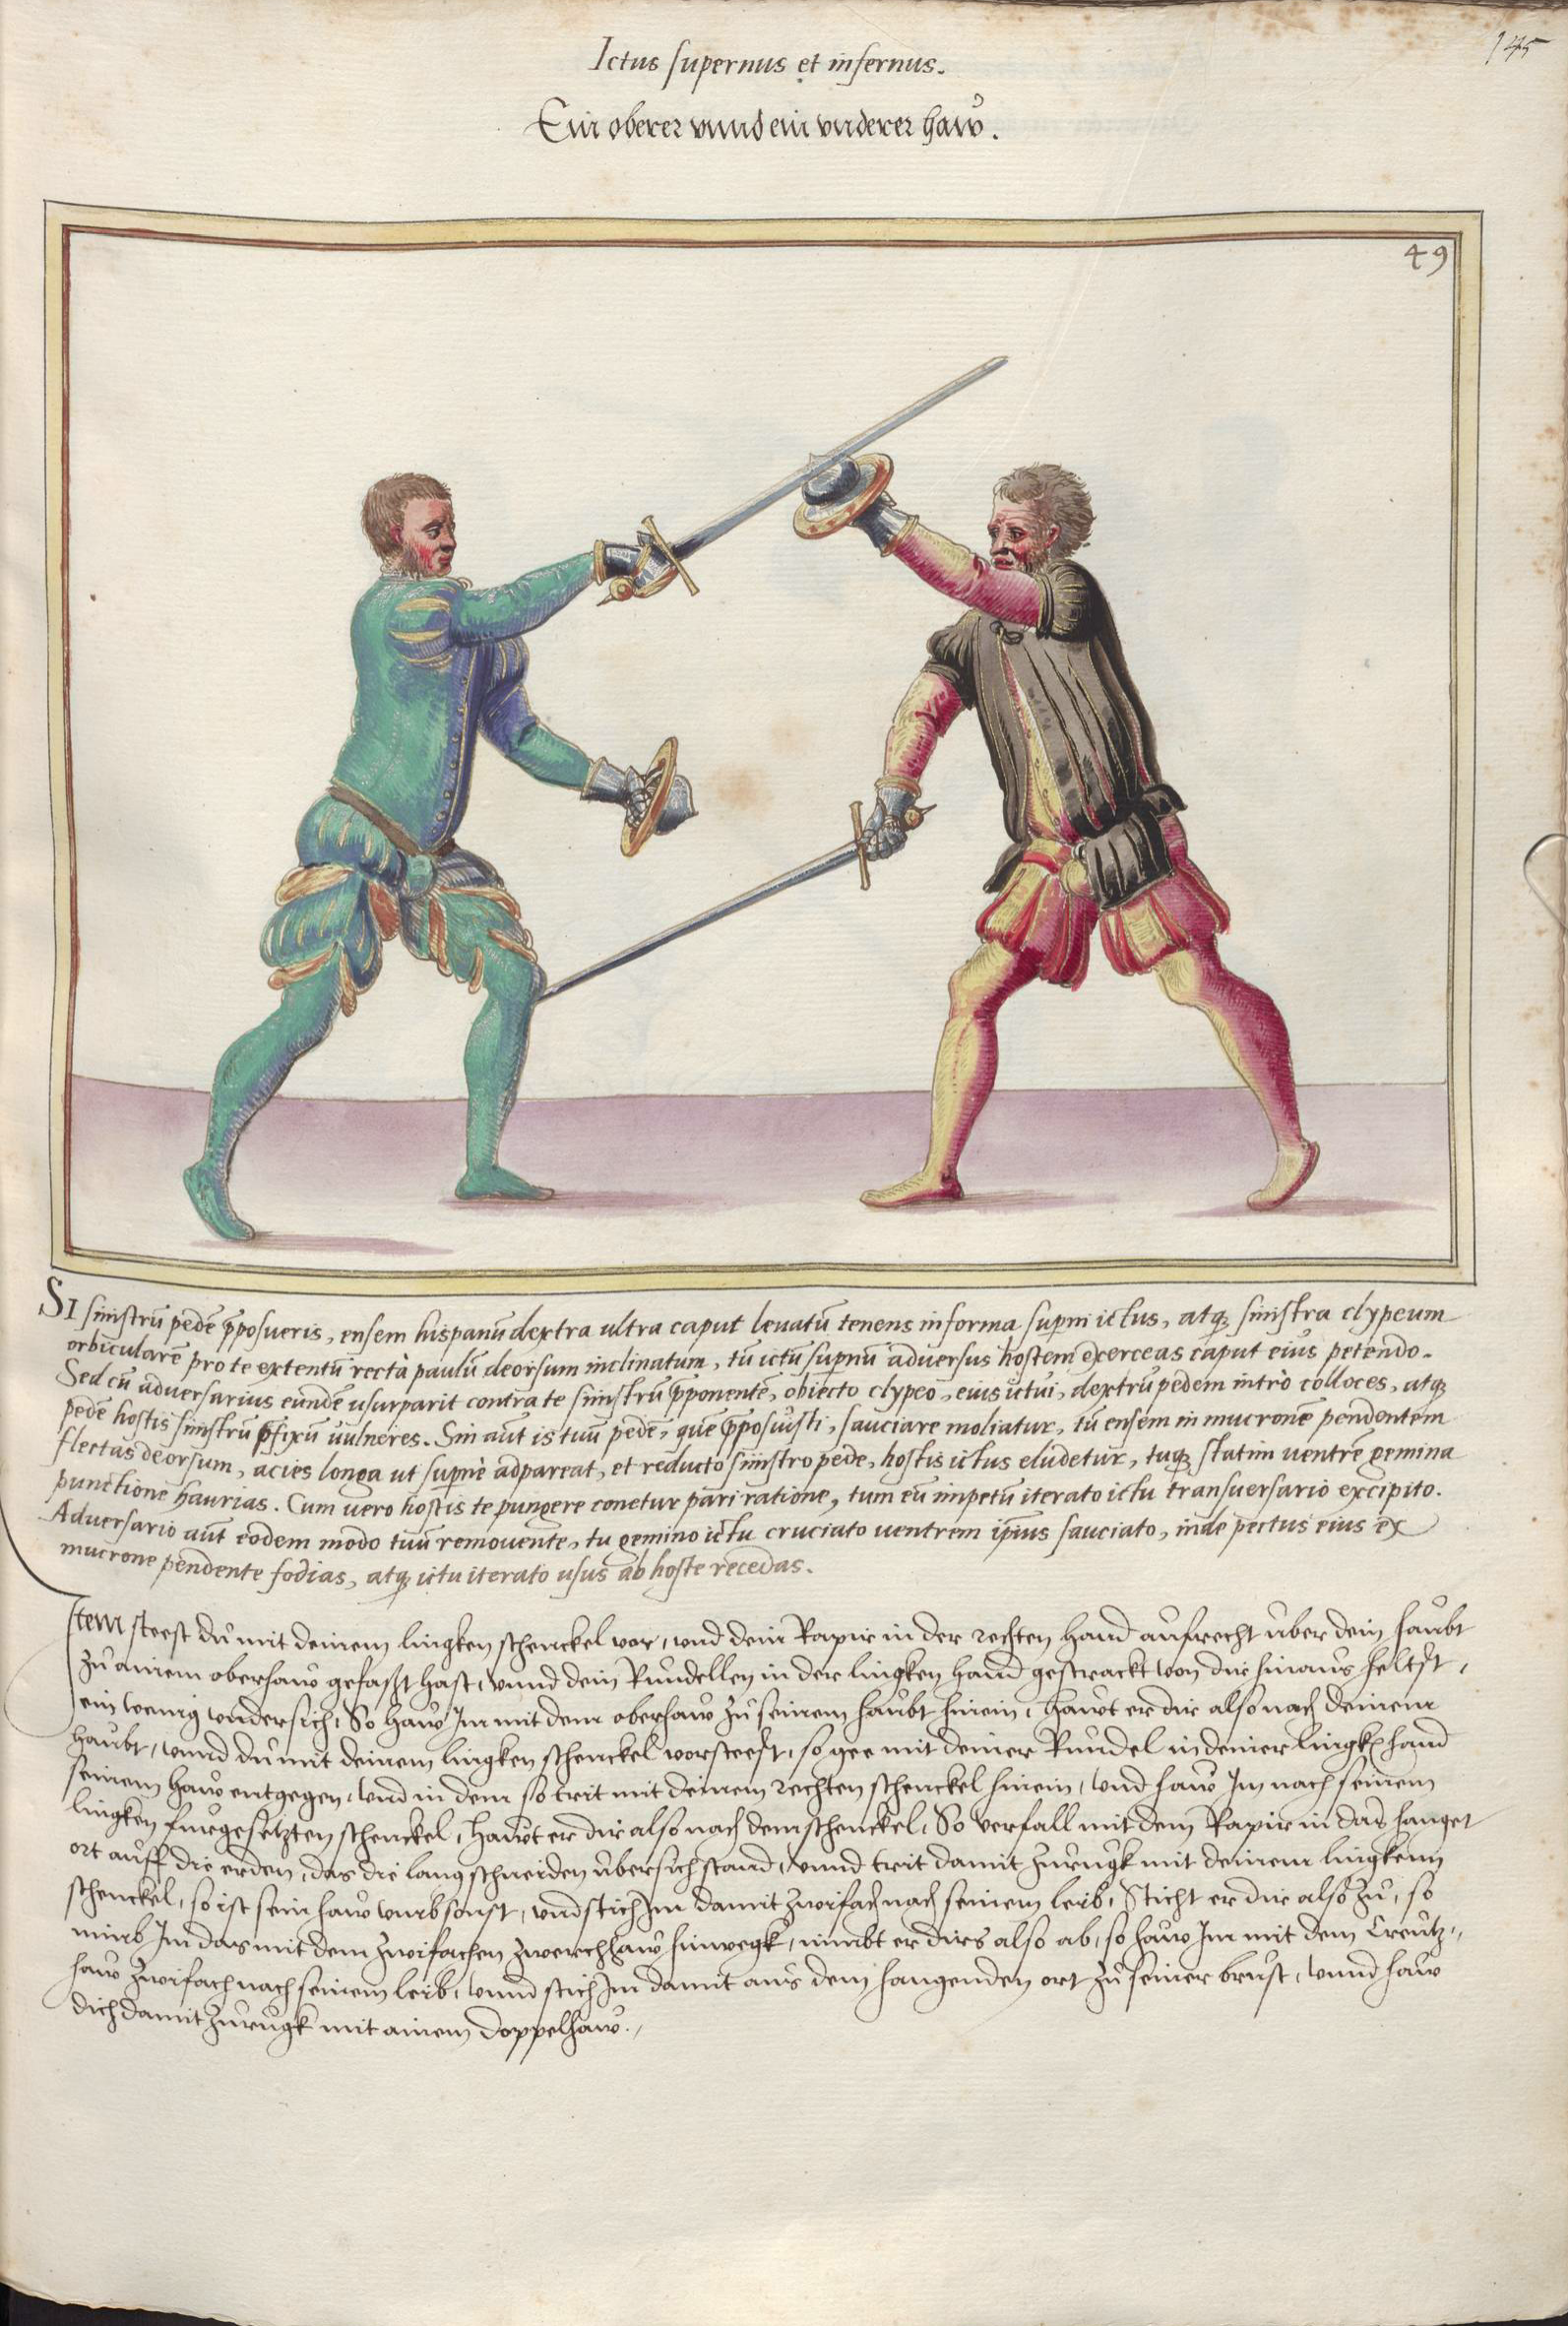 145
Ictus supernus et infernus.
Ein oberer vnnd ein vnderer haw.
49
SI sinistrũ pedẽ p̱posueris, ensem hispanũ dextra ultra caput leuatũ tenens in forma supni ictus, atq; sinistra clypeum
orbicularẽ pro te extentũ rectà paulũ deorsum inclinatum, tũ ictũ supnũ adversus hostem exerceas caput eius petendo.
Sed cũ adversarius eundẽ usurparit contra te sinistrũ p̱ponentẽ, obiecto clypeo, eius ictui, dextrũ pedem intrò colloces, atq;
pedẽ hostis sinistrũ p̱fixũ vulneres. Sin aũt is tuũ pedẽ, quẽ p̱posuisti, sauciare moliatur, tũ ensem in mucronẽ pendentem
flectas deorsum, acies longa ut supnè adpareat, et reducto sinistro pede, hostis ictus eludetur, tuq; statim uentrẽ gemina
punctione haurias. Cum uero hostis te pungere conetur pari ratione, tum eũ impetũ iterato ictu transuersario excipito.
Adversario aũt eodem modo tuũ remouente, tu gemino ictu cruciato uentrem ip̃ius sauciato, inde pectus eius ex
mucrone pendente fodias, atq; ictu iterato usus ab hoste recedas.
Item steest du mit deinem lingken schenckel vor, vnd dein Rapir in der rechten hand aufrecht vber dein haubt
zu ainem oberhaw gefasst hast, vnnd dein Rundellen in der lingken hand gestrackt von dir hinaus heltst,
ein wenig vndersich, So haw Im mit dem oberhaw zu seinem haubt hinein, hawt er dir also nach deinem
haubt, vnnd du mit deinem lingken schenckel vorsteest, so gee mit deiner Rundel in deiner lingkẽ hand
seinem haw entgegen, vnd in dem so trit mit deinem rechten schenckel hinein, vnd haw Im nach seinem
lingken furgesetzten schenckel, Hawt er dir also nach dem schenckel, So verfall mit dem Rapir in das hanget
ort auff die erden, das die lang schneiden vbersich stand, vnnd trit damit zurugk mit deinem lingkenn
schenckel, so ist sein haw vmbsonst, vnd stich Im damit zwifach nach seinem leib, Sticht er dir also zu, so
nimb Im das mit dem zwifachen zwerchhaw hinwegk, nimbt er dirs also ab, so haw Im mit dem Creutz„
haw zwifach nach seinem leib, vnnd stich Im damit aus dem hangenden ort zu seiner brust, vnnd haw
dich damit zurugk mit ainem doppelhaw.